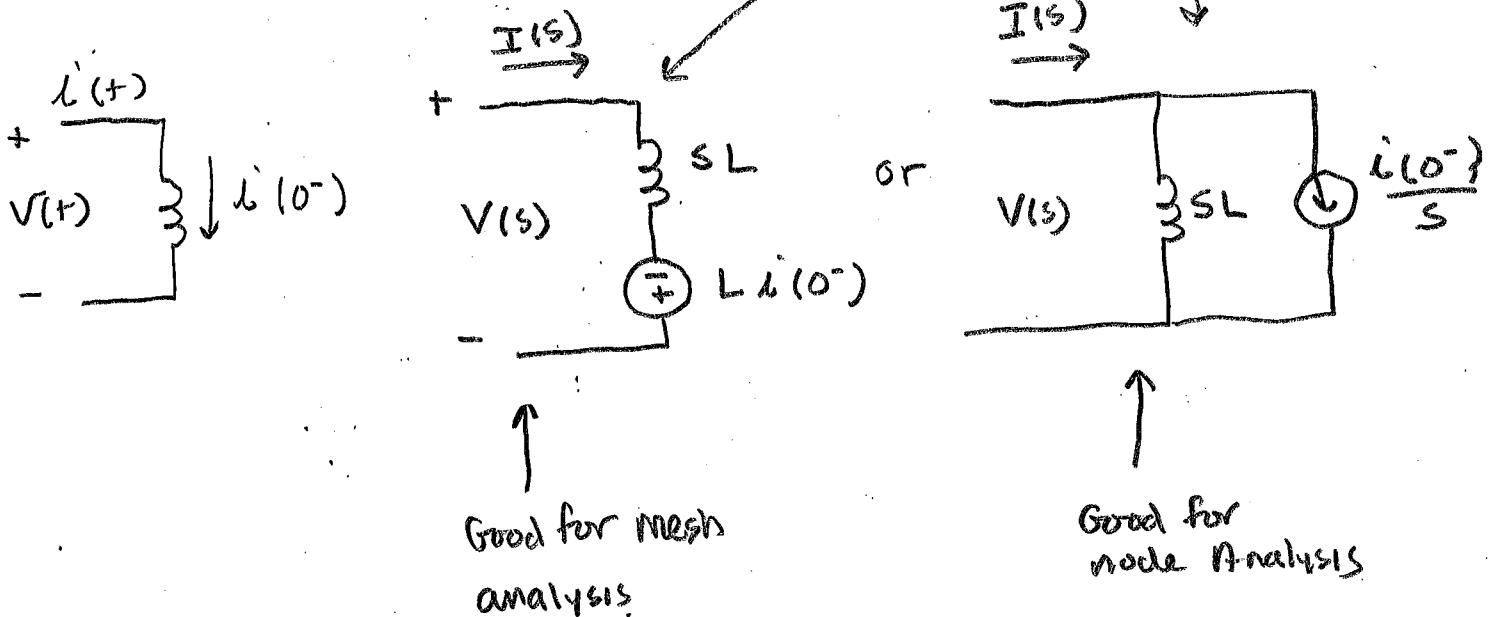 I(s)
I(s)
i(t)
+
V(t)
-
i(0⁻)
+
V(s)
-
sL
-
+
L i(0⁻)
or
V(s)
sL
i(0⁻)
s
Good for mesh
analysis
Good for
node Analysis